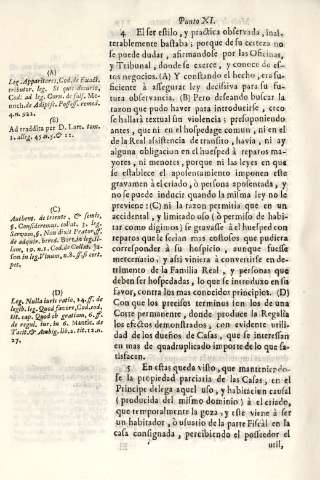 Punto XI.
4 El ser estilo, y practica observada, inal-
terablemente bastaba; porque de su certeza no
se puede dudar, afirmandose por las Oficinas,
y Tribunal, donde se exerce, y conoce de es-
tos negocios. (A) Y constando el hecho, era su-
ficiente à assegurar ley decisiva para su fu-
tura observancia. (B) Pero deseando buscar la
razon que pudo haver para introducirse, creo
se hallarà textual sin violencia; presuponiendo
antes, que ni en el hospedage comun, ni en el
de la Real assistencia de transito, havia, ni ay
alguna obligacion en el huesped à reparos ma-
yores, ni menores, porque ni las leyes en que
se establece el aposentamiento imponen este
gravamen à el criado, ò persona aposentada, y
no se puede inducir quando la misma ley no lo
previene: (C) ni la razon permitia que en un
accidental, y limitado uso (ò permiso de habi-
tar como digimos) se gravasse à el huesped con
reparos que le serian mas costosos que pudiera
corresponder à su hospicio, aunque fuesse
mercenario, y assi viniera à convertirse en de-
trimento de la Familia Real, y personas que
deben ser hospedadas, lo que se introduxo en su
favor, contra los mas conocidos principios. (D)
Con que los precisos terminos son los de una
Corte permanente, donde produce la Regalia
los efectos demonstrados, con evidente utilidad
de los dueños de Casas, que se interessan
en mas de quadruplicado importe de lo que sa-
tisfacen.
5 En estas queda visto, que manteniendo-
se la propiedad parciaria de las Casas, en el
Principe delega aquel uso, y habitacion causal
(producida del mismo dominio) à el criado,
que temporalmente la goza, y este viene à ser
un habitador, ò usuario de la parte Fiscal en la
casa consignada, percibiendo el possedor el
util,
(A)
Leg. Apparitores, Cod. de Exact.
tributor. leg. Si qui
Cod. ad leg.
4. n. 922.
(B)
Ad traddita por D. Lar. tom.
1. alleg. 45. n. 5. & 12.
(C)
Authent. de triente, & semis,
§. Consideremus. collat. 3. leg.
Servum, §. Non dixit Prætor, ff.
de adquir. hered.
(D)
Leg. Nulla iuris ratio. 24. ff. de
legib. leg. Quod favore, Cod. eod.
tit. cap. Quod ob gratiam. 6. ff.
de regul. iur. in 6. Mantic. de
Tacit. & Ambig. lib. 2. tit. 12. n.
27.